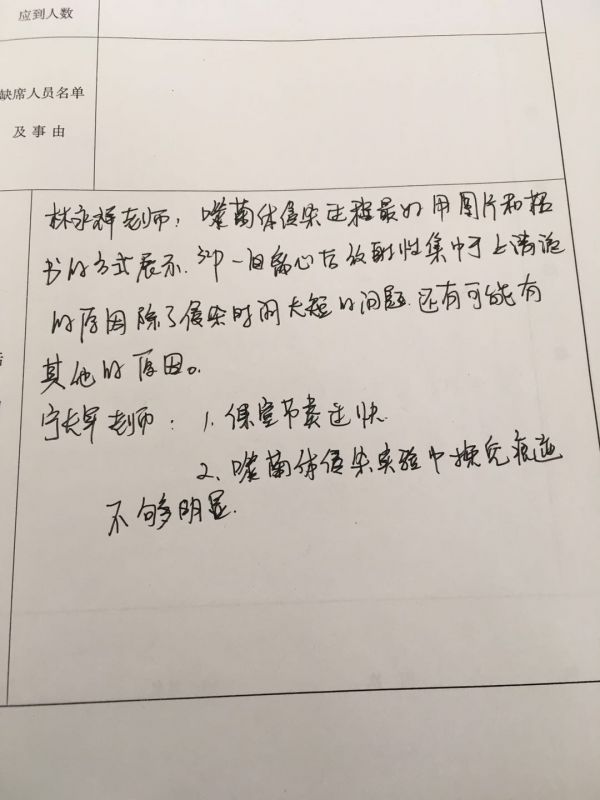 应到人数
缺席人员名单
及事由
林永祥老师：噬菌体侵染过程最好用图片和板
书的方式展示. 32P一 离心后放射性集中于上清液
的原因除了侵染时间太短的问题.还有可能有
其他的原因。
老师：1. 课堂节奏过快
2、噬菌体侵染实验中探究痕迹
不够明显.